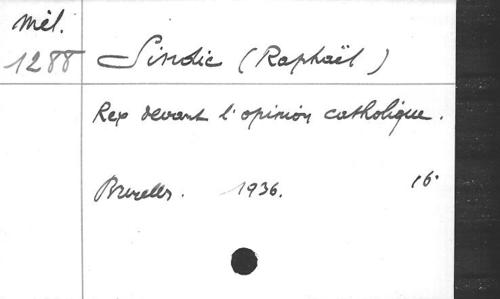 Mél.
1288
Sindic (Raphaël)
Rex devant l'opinion catholique.
Bruxelles. 1936. 16°